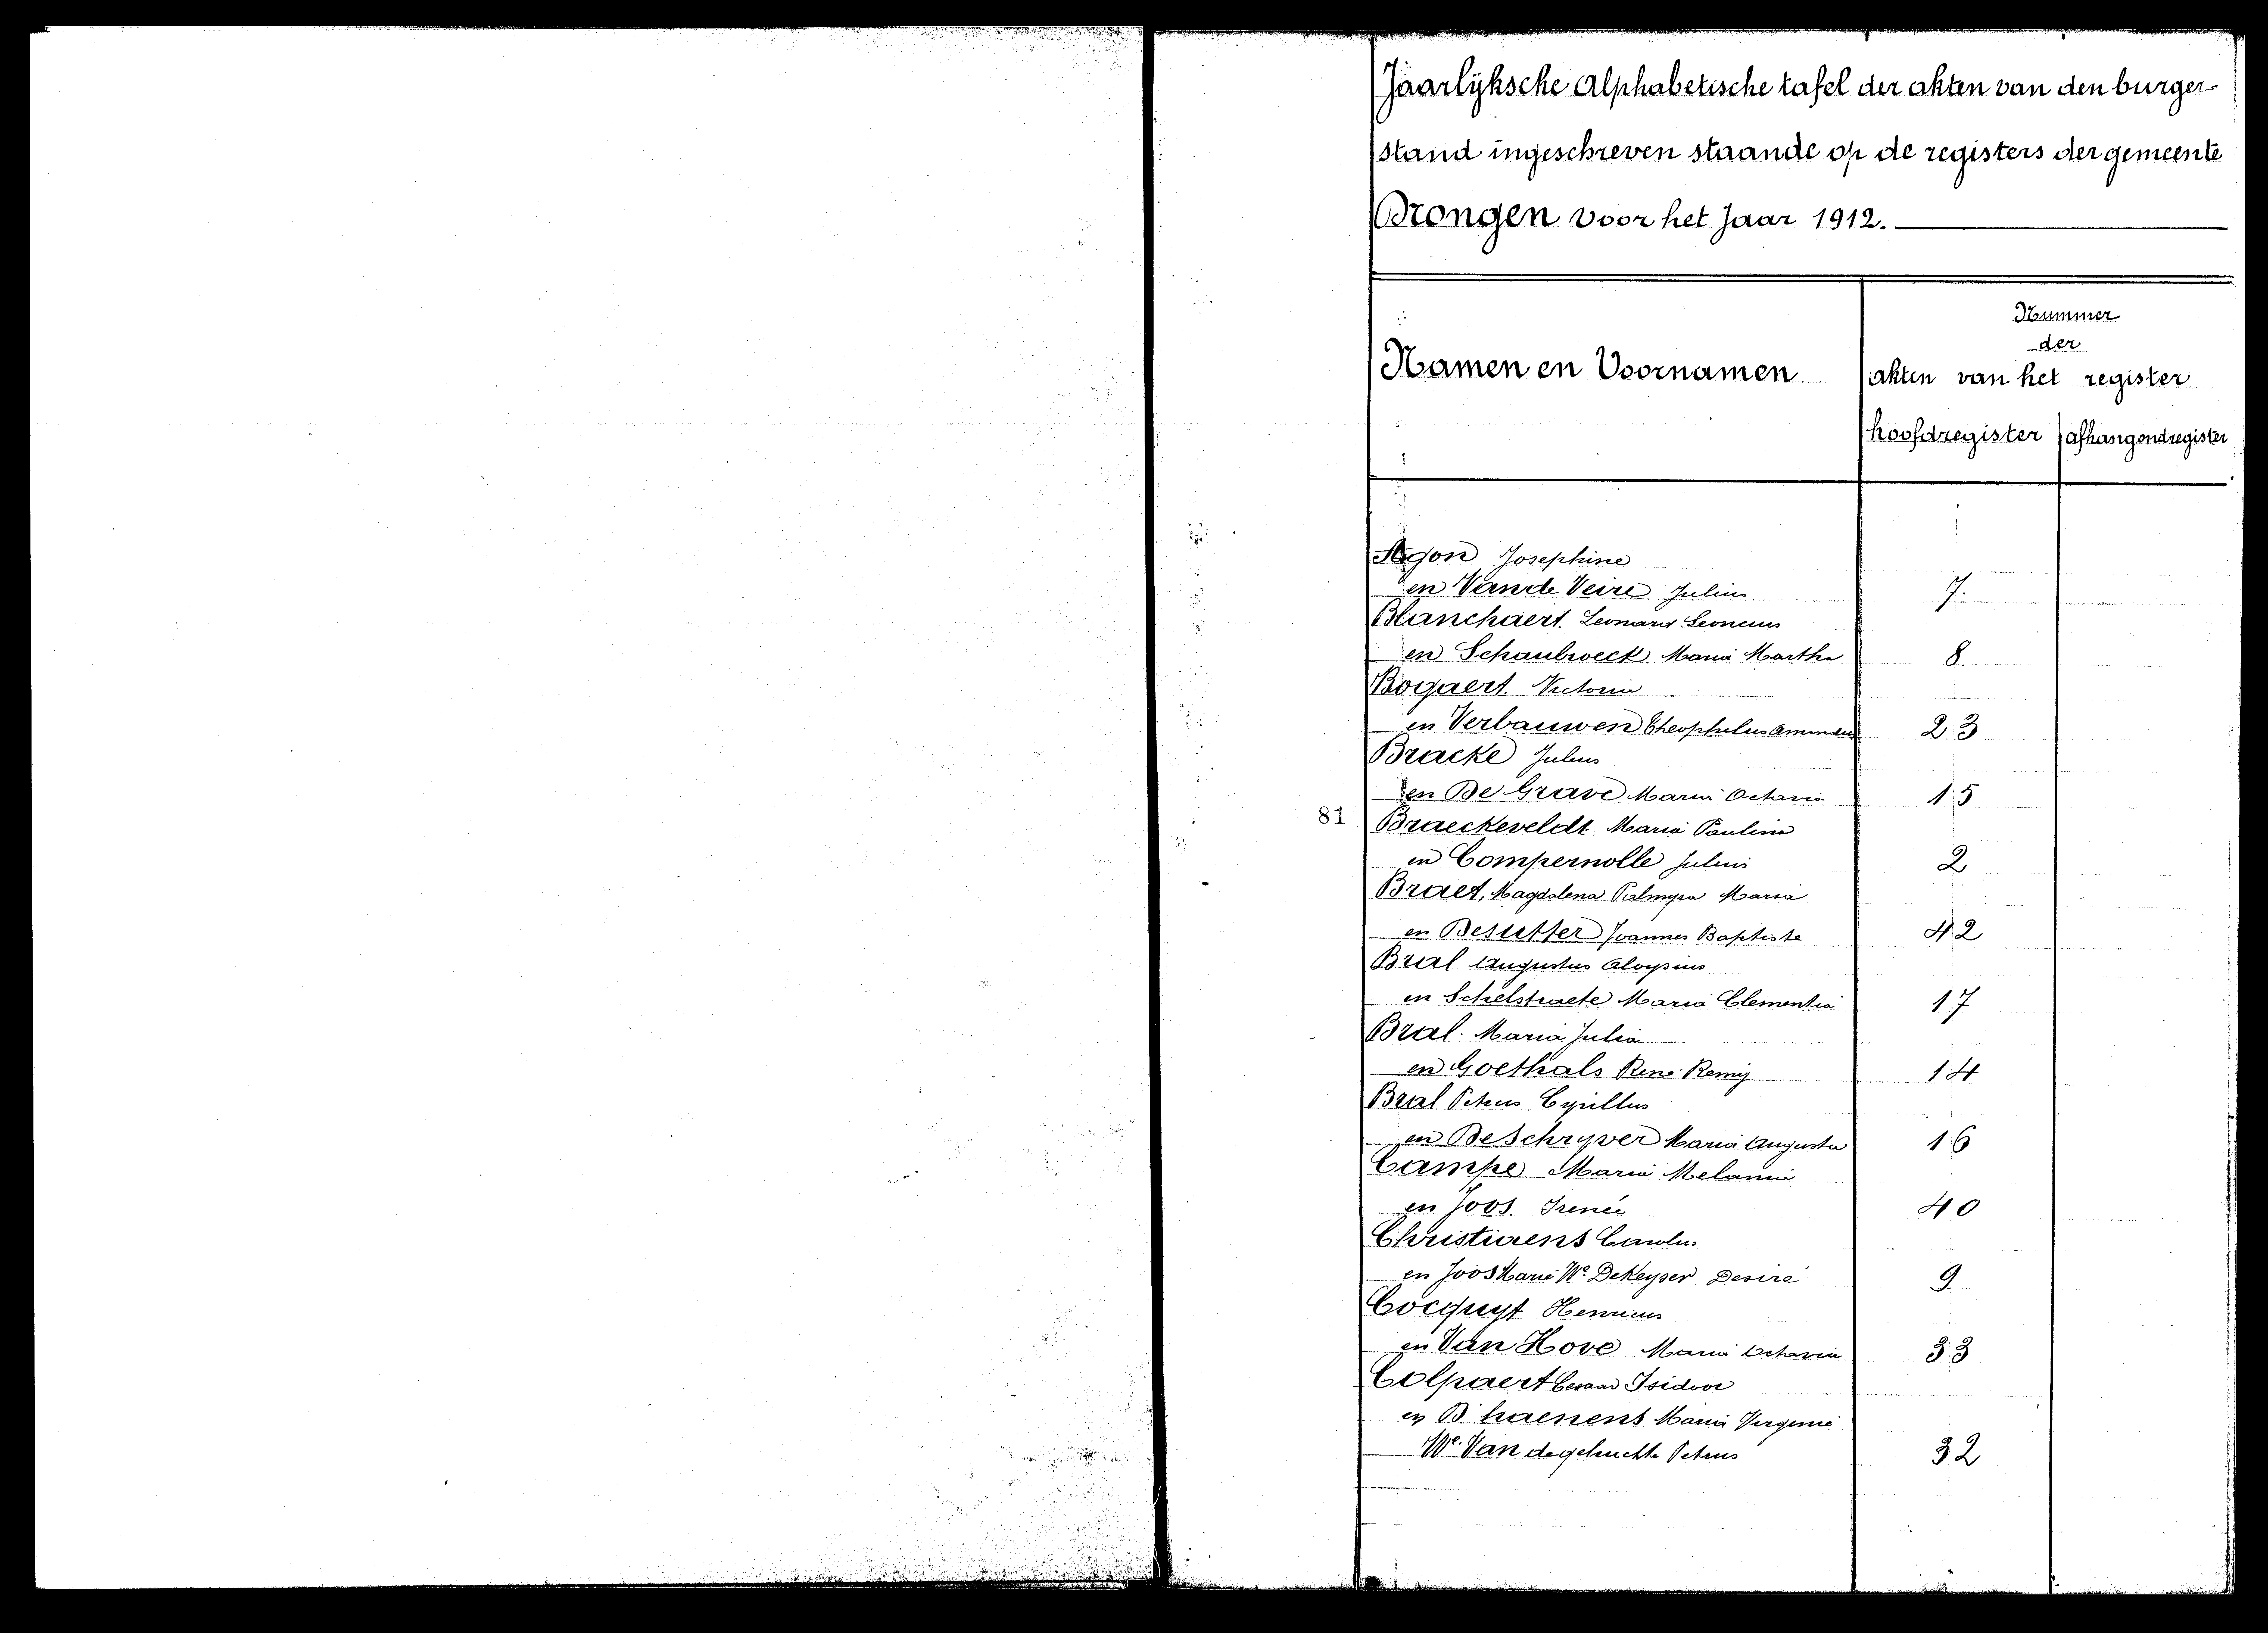 Jaarlijksche Alphabetische tafel der akten van den burger-
stand ingeschreven staande op de registers der gemeente
Drongen voor het Jaar 1912.
Nummer
der
Namen en Voornamen
akten van het register
hoofdregister afhangendregister
Josephine
en Van de Veire Julius 7.
Blanchaert Leonard Leoncius
en Schaubroeck Maria Martha 8.
Bogaert Victorin
en Verbauwen Theophilus Amandus 23
Bracke Julius
en De Grave Maria Octavia 15
81
Braeckeveldt Maria Paulina
en Compernolle Julius 2
Braet, Magdalena Palmyra Maria
en Desutter Joannes Baptiste 42
Bral Augustus Aloysius
en Schelstraete Maria Clementia 17
Bral Maria Julia
en Goethals René Remy 14
Bral Petrus Cyrillus
en De Schryver Maria Augusta 16
Campe Maria Melania
en Joos Irenée 40
Christiaens Carolus
en Joos Marie We. DeKeyser Desiré 9
Cocquyt Henricus
en Van Hove Maria Octavia 33
Colpaert Isidoor
en D'haenens Maria Virginie
We. Van de gehuchte Petrus 32